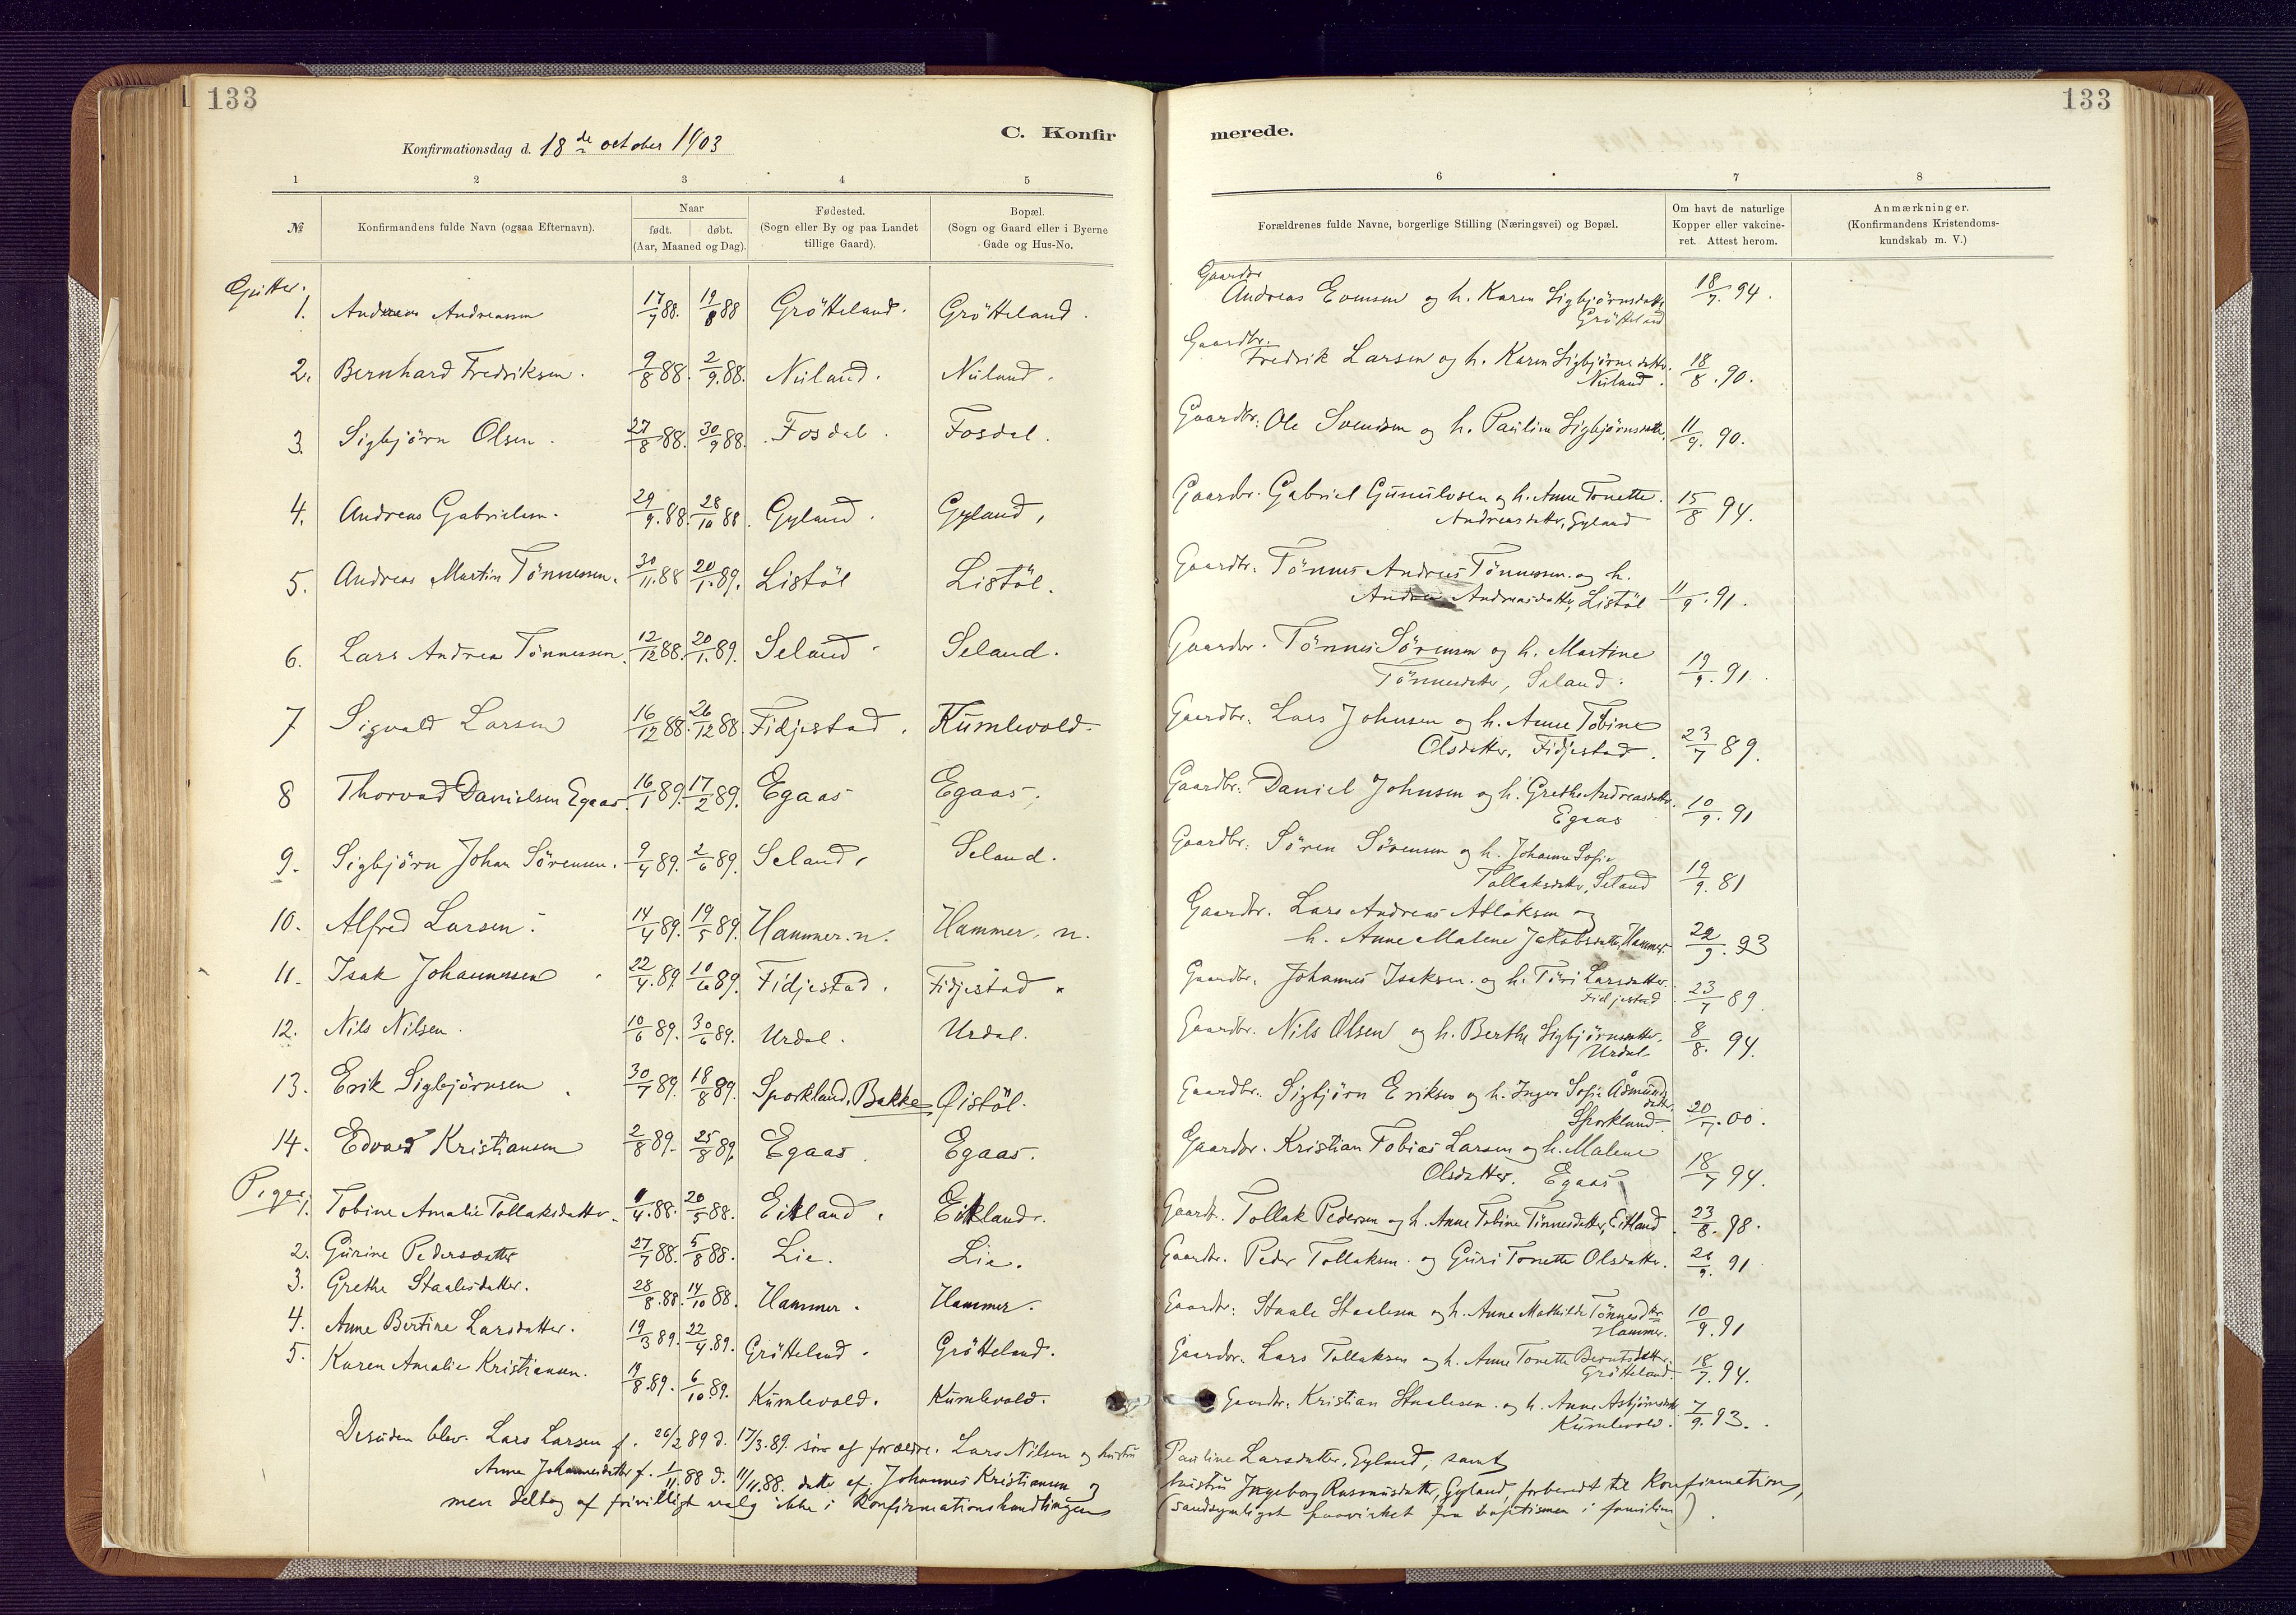 133
133
C. Konfir
merede.
Konfirmationsdag d. 18de october 1903
1 2 3 4 5 6 7 8
№
Konfirmandens fulde Navn (ogsaa Efternavn).
Naar
født. døbt.
(Aar, Maaned og Dag).
Fødested.
(Sogn eller By og paa Landet
tillige Gaard).
Bopæl.
(Sogn og Gaard eller i Byerne
Gade og Hus-No.
Forældrenes fulde Navne, borgerlige Stilling (Næringsvei) og Bopæl.
Om havt de naturlige
Kopper eller vakcine-
ret. Attest herom.
Anmærkninger.
(Konfirmandens Kristendoms-
kundskab m. V.)
Gutter.
1. Andreas Andreassen 17/7 88. 19/8 88 Grötteland. Grötteland.
Gaardbr Andreas Evensen og h. Karen Sigbjørnsdatter
Grötteland 18/7. 94.
2. Bernhard Fredriksen. 9/8 88. 2/9. 88. Nuland. Nuland.
Gaardbr. Fredrik Larsen og h. Karen Sigbjörnsdatter.
Nuland. 18/8. 90.
3. Sigbjörn Olsen. 27/8 88. 30/9 88. Fosdal. Fosdal.
Gaardbr. Ole Svendsen og h. Pauline Sigbjørnsdatter. 11/9. 90.
4. Andreas Gabrielsen. 29/9. 88. 28/10 88. Gyland. Gyland,
Gaardbr. Gabriel Gunuldsen og h. Anne Tonette.
Andreasdatter, Gyland 15/8 94.
5. Andreas Martin Tönnessen. 30/11. 88 20/1. 89. Listöl Listöl.
Gaardbr. Tönnes Andreas Tönnessen og h.
Andrea Andreasdatter, Listöl 11/9. 91.
6. Lars Andreas Tönnessen. 12/12 88. 20/1. 89. Seland. Seland.
Gaardbr. Tönnes Sörensen og h. Martine
Tönnesdatter, Seland. 19/9. 91.
7 Sigvald Larsen 16/12 88. 26/12 88. Fidjestad. Kumlevold.
Gaardbr. Lars Johnsen og h. Anne Tobine
Olsdatter, Fidjestad. 23/7 89.
8 Thorvad Danielsen Egaas. 16/1 89. 17/2 89. Egaas Egaas.
Gaardbr. Daniel Johnsen og h. Grethe Andreasdatter.
Egaas 10/9. 91
9. Sigbjörn Johan Sörensen. 9/4 89. 2/6 89. Seland. Seland.
Gaardbr. Sören Sörensen og h. Johanne Sofie
Tollaksdatter, Seland 19/9. 81
10. Alfred Larsen. 14/4 89. 19/5 89. Hammer. n. Hammer. n.
Gaardbr. Lars Andreas Atlaksen og
h. Anne Malene Jakobsdatter, Hammer. 22/9. 93
11. Isak Johannessen 22/4. 89. 10/6 89. Fidjestad. Fidjestad.
Gaardbr. Johannes Isaksen og h. Turi Larsdatter.
Fidjestad 23/7 89.
12. Nils Nilsen. 10/6 89. 30/6 89. Urdal. Urdal.
Gaardbr. Nils Olsen og h. Berthe Sigbjörnsdatter.
Urdal. 8/8. 94.
13. Erik Sigbjörnsen. 30/7 89. 18/8 89. Sporkland, Bakke, Qistöl.
Gaardbr. Sigbjörn Eriksen og h. Inger Sofie Åsmunds
datter, Sporkland. 20/7. 00.
14. Edvard Kristiansen 2/8 89. 25/8 89. Egaas. Egaas.
Gaardbr. Kristian Tobias Larsen og h. Malene
Olsdatter. Egaas 18/7 94.
Piger.
1. Tobine Amalie Tollaksdatter. /4. 88. 20/5 88. Eitland. Eitland.
Gaardbr. Tollak Pedersen og h. Anne Tobine Tönnesdatter, Eitland. 23/8. 98.
2. Gurine Pedersdatter 27/7 88. 5/8 88. Lie. Lie.
Gaardbr. Peder Tollaksen og Guri Tonette Olsdatter. 26/9. 91
3. Grethe Staalesdatter. 28/8. 88. 14/10 88. Hammer. Hammer.
Gaardbr. Staale Staalesen og h. Anne Mathilde Tönnesdtr
Hammer. 10/9. 91
4. Anne Bertine Larsdatter. 19/3 89. 22/4. 89. Grötteland. Grötteland.
Gaardbr. Lars Tollaksen og h. Anne Tonette Berntsdatter.
Grötteland. 18/7. 94.
5. Karen Amalie Kristiansen. 19/8. 89. 6/10 89. Kumlevold. Kumlevold.
Gaardbr. Kristian Staalesen og h. Anne Asbjörnsdtr
Kumlevold. 7/9. 93.
Desuden blev Lars Larsen f. 26/2 89 d. 17/3. 89. sön af forældre. Lars Nilsen og hustru Pauline Larsdatter, Gyland, samt
Anne Johannesdatter f. 1/11 88 d. 11/11. 88. datter af Johannes Kristiansen og hustru Ingeborg Rasmusdatter, Gyland, forberedt til Konfirmation,
men deltog af frivilligt valg ikke i Konfirmationshandlingen (sandsynligst paavirket fra baptismen i familien).